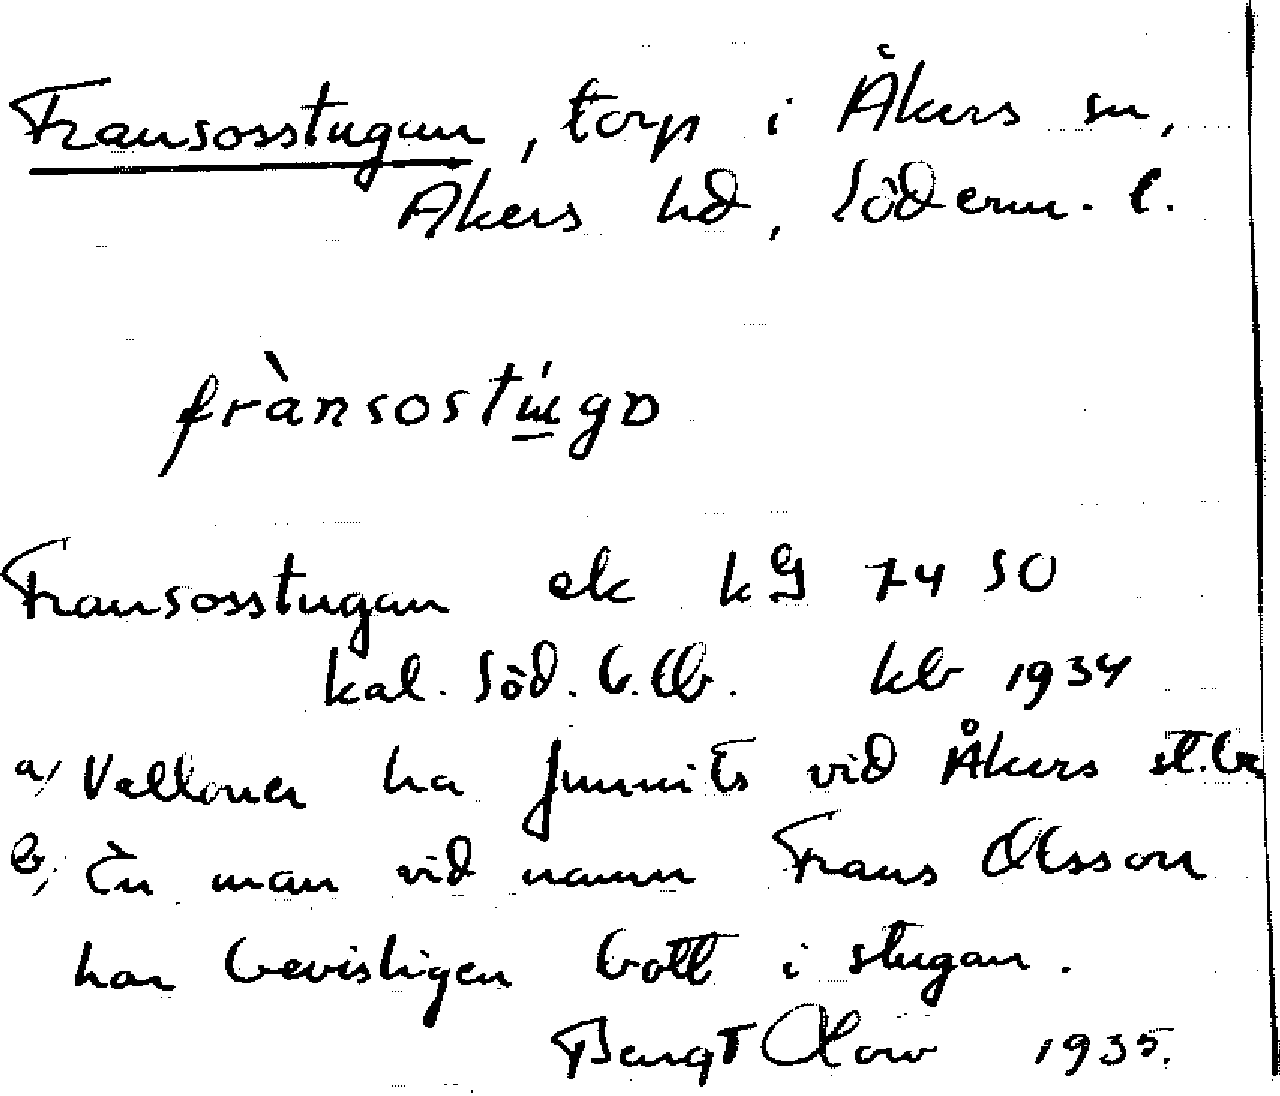 Fransosstugan, torp i Åkers sn,
Åkers hd, Söderm. l.
frànsostúgo
Fransosstugan ek kg 74 SO
kal. Söd. b. Ob. kb 1934
a/ Valloner ha funnits vid Åkers st.br
b, En man vid namn Frans Olsson
har bevisligen bott i stugan.
Bengt Olow 1935.